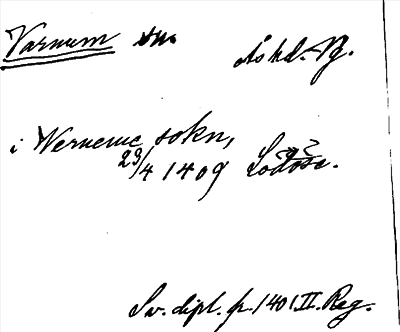 Varnum sn. Ås hd. Vg.
i Werneme sokn,
23/4 1409 Lödöse.
Sv. dipl. fr. 1401 II. Reg.